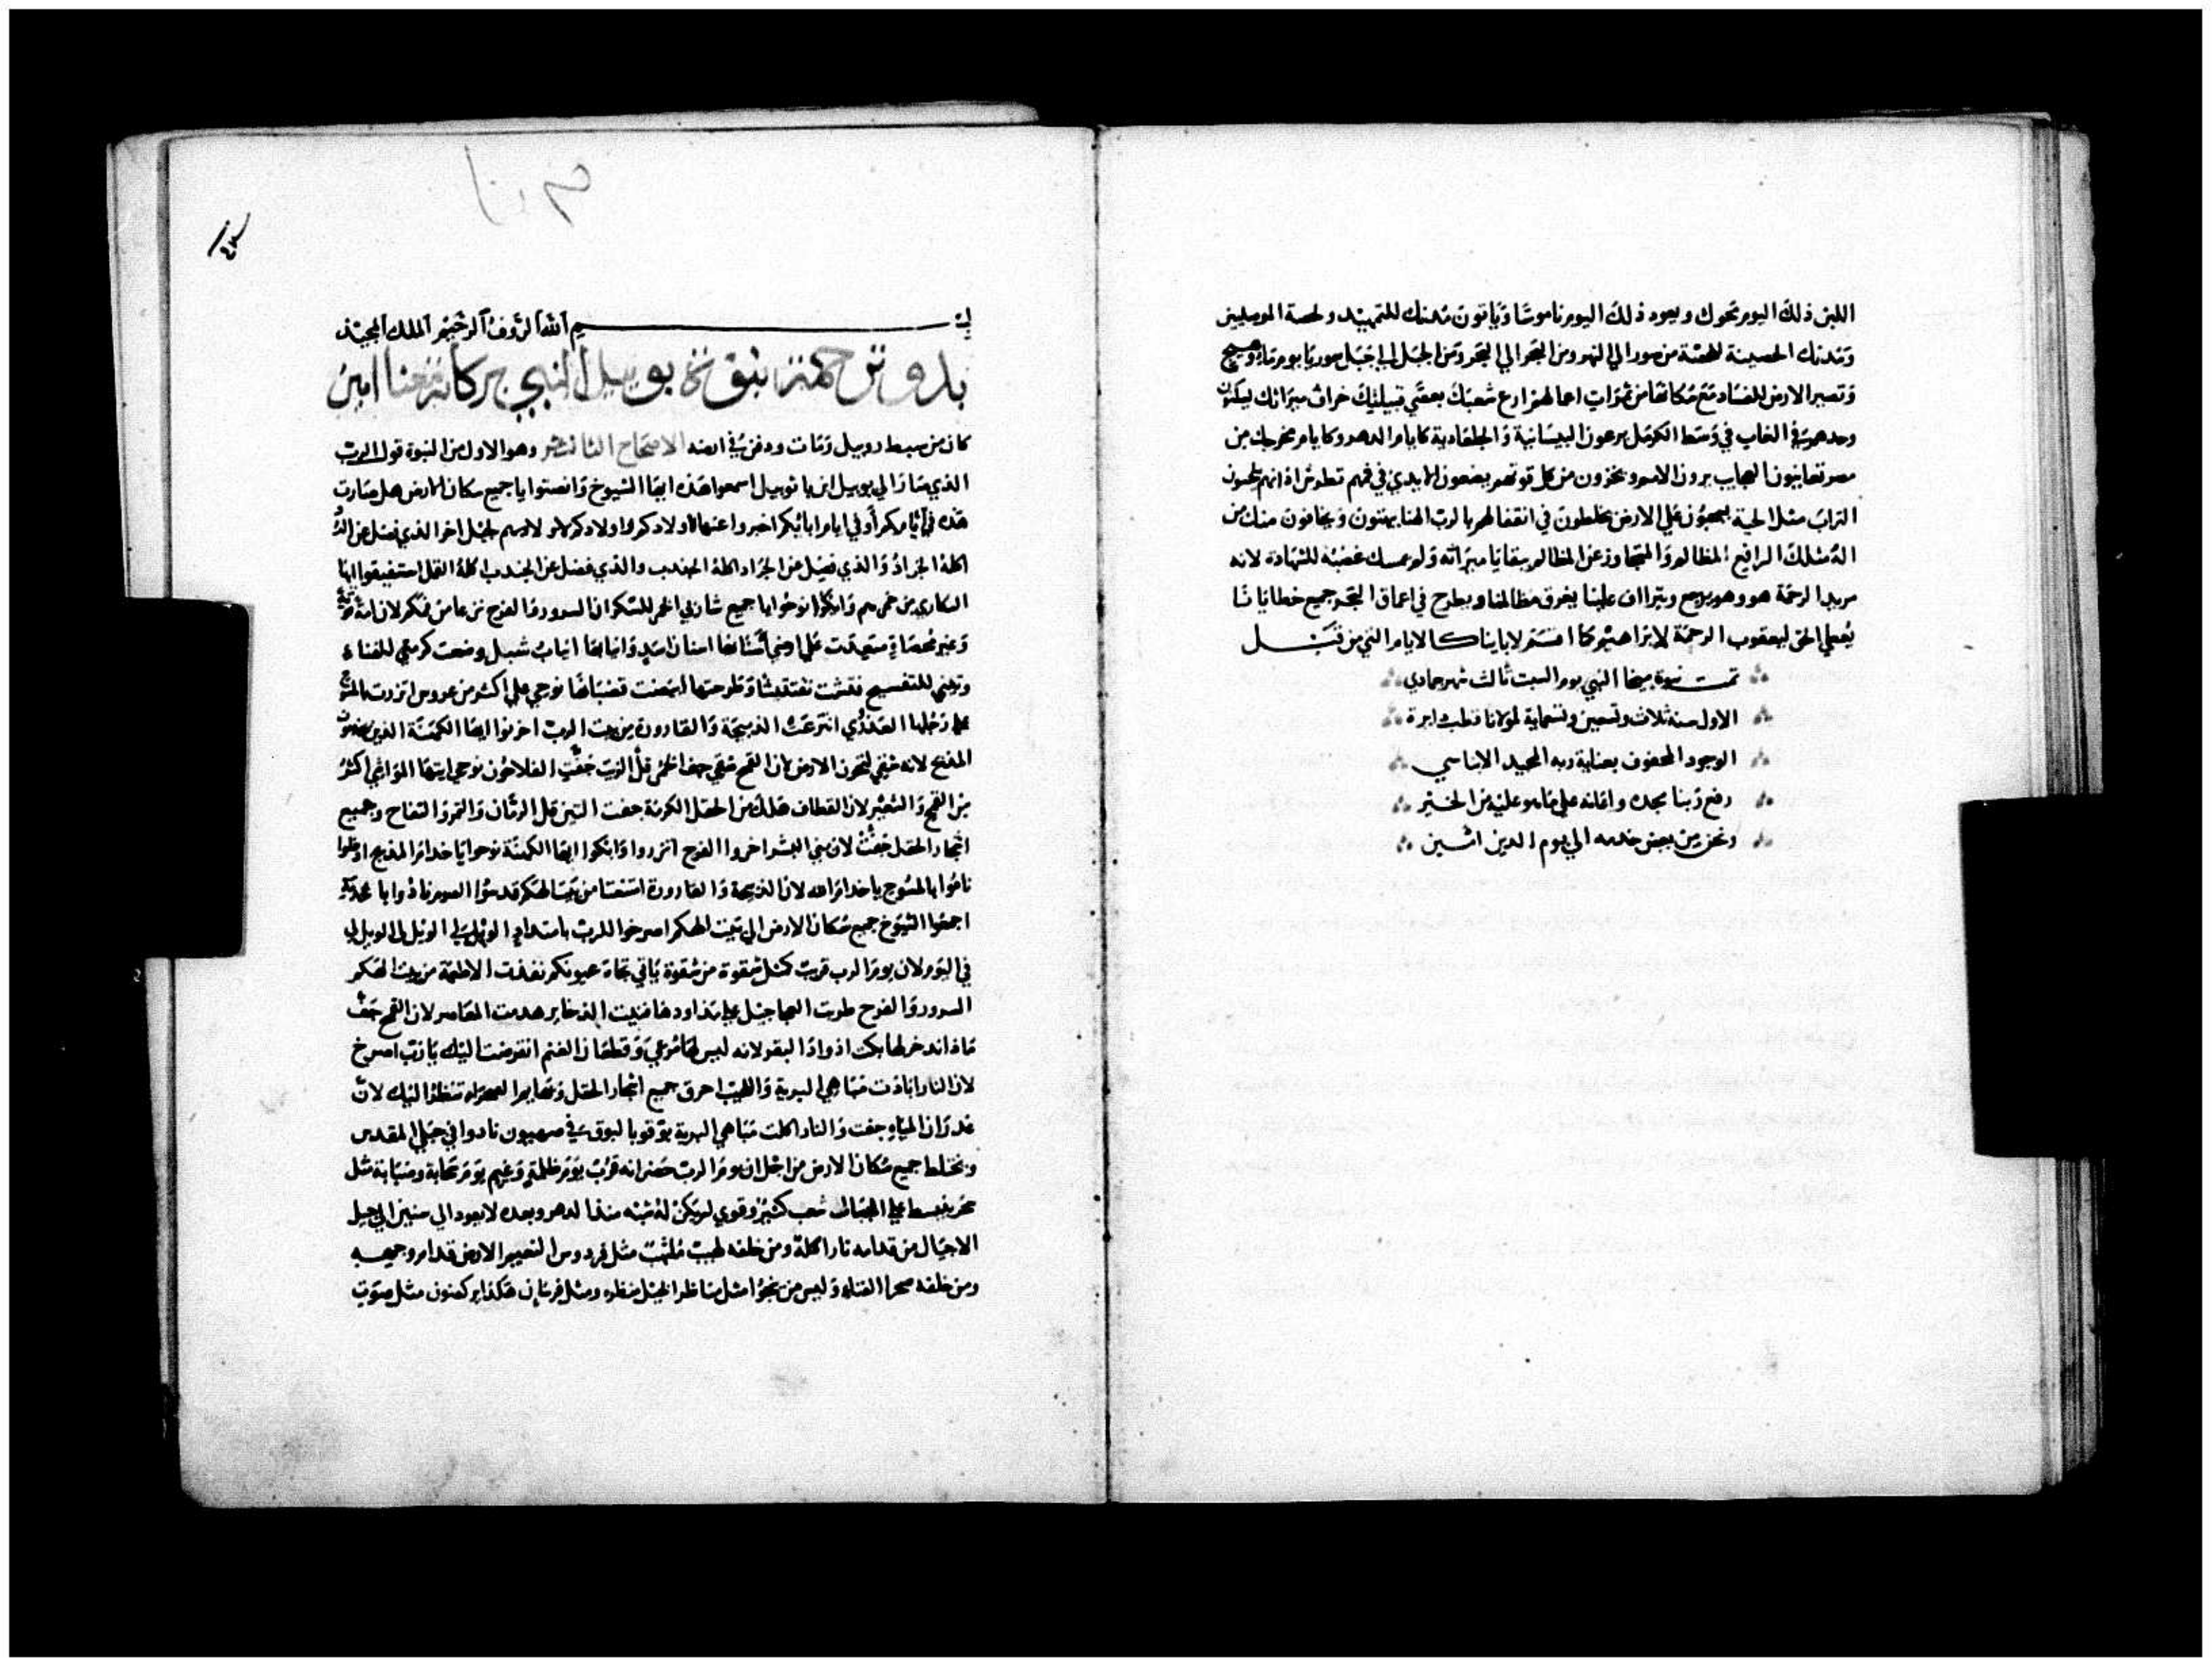 اللبن ذلك اليوم تحوك ويعود ذلك اليوم ناموسا وياتون مدنك للتمهيد ولحصة الموصليين
ومدنك الحصينة للحصة من صور الى النهر ومن البحر الى البحر ومن الجبل الى جبل صوريا يوم
وتصير الارض للفساد مع سكانها من ثمرات اعمالهم ارع شعبك بعصي قبيلتك خراف ميراثك
وحدهم في الغاب في وسط الكرمل يرعون البيسانية والجلعادية كايام الدهر وكايام مخرجك من
مصر تعاينون العجايب يرون الامم ويخزون من كل قوتهم يضعون الايدي في فمهم تطرش اذانهم يلحسون
التراب مثل الحية يسحبون علي الارض يختلطون في انقفالهم بالرب الهنا يبهتون ويخافون منك من
اله مثلك الرافع المظالم والمتجاوز عن المظالم ببقايا ميراثه ولم يمسك غضبه للشهادة لانه
مريد الرحمة هو وهو يرجع ويتراف علينا يغرق مظالمنا ويطرح في اعماق البحر جميع خطايانا
يعطي الحق ليعقوب الرحمة لابراهيم كما اقسم لاباينا كالايام التي من قبل
تمت نبوة ميخا النبي يوم السبت ثالث شهر جمادي
الاول سنة ثلاث وتسعين وتسعماية لمولانا قطب دايرة
الوجود المحفوف بعناية ربه المجيد الانباسي
رفع ربنا مجده واعانه علي ما هو عليه من الخير
ونحن من بعض خدمه الي يوم الدين امين
بسم الله الروف الرحيم الملك المجيد
بدو نبوة يوييل النبي بركاته تحفظنا امين
كان من سبط روبيل ومات ودفن في ارضه الاصحاح وهو الاول من النبوة قول الرب
الذي صار الي يوييل ابن باثوييل اسمعوا هذه ايها الشيوخ وانصتوا يا جميع سكان الارض هل صارت
هذه في ايامكم او في ايام ابايكم اخبروا عنها اولادكم واولادكم لاولادهم لجيل اخر الذي فضل عن
اكله الجراد والذي فضل عن الجراد اكله الجندب والذي فضل عن الجندب اكله القمل استفيقوا ايها
السكاري من خمرهم وابكوا نوحوا يا جميع شاربي الخمر للسكر ان السرور والفرح نزعا من فمكم لان امة
وغير محصاة صعدت علي ارضي اسنانها اسنان اسد وانيابها انياب شبل وضعت كرمتي للفناء
وتيني للتفسيح فتشت تفتيشا وطرحتها ابيضت قضبانها نوحي علي اكثر من عروس اتزرت بالمسح
علي رجلها العذري انتزعت الذبيحة والقارورة من بيت الرب احزنوا ايها الكهنة الذين يخدمون
المذبح لانه شقي لتحزن الارض لان القمح شقي جف الخمر قل الزيت جفت الفلاحون نوحي ايتها المواشي اكثر
من القمح والشعير لان القطاف هلك من الحقل الكرمة جفت التين قل الرمان والتمر والتفاح وجميع
اشجار الحقل جفت لان بني البشر اخزوا الفرح اتزروا وابكوا ايها الكهنة نوحوا يا خدام المذبح ادخلوا
ناموا بالمسوح يا خدام الله لان الذبيحة والقارورة امتنعتا من بيت الهكم قدسوا الصوم نادوا
اجمعوا الشيوخ جميع سكان الارض الي بيت الهكم اصرخوا للرب بامتداد الويل لي الويل لي الويل لي
في اليوم لان يوم الرب قريب كمثل شقوة من شقوة ياتي تجاه عيونكم نفذت الاطعمة من بيت الهكم
السرور والفرح طربت العجاجيل علي مذاودها فنيت الذخاير هدمت المعاصر لان القمح جف
ماذا ندخر لها بكت اذواد البقر لانه ليس لها مرعي وقطعان الغنم انقرضت اليك يا رب اصرخ
لان النار ابادت مباهي البرية واللهيب احرق جميع اشجار الحقل وبهايم الصحراء تنظر اليك لان
غدران المياه جفت والنار اكلت مباهي البرية بوقوا بالبوق في صهيون نادوا في جبلي المقدس
ويختلط جميع سكان الارض من اجل ان يوم الرب حضر انه قريب يوم ظلمة وغيم يوم سحابة وضبابة مثل
ينبسط علي الجبال شعب كثير وقوي لم يكن له شبه منذ الدهر وبعده لا يعود الي سنين الي جيل
الاجيال من قدامه نار اكلة ومن خلفه لهيب ملتهب مثل فردوس النعيم الارض قدام وجهه
ومن خلفه صحرا الفناء وليس من ينجوا مثل مناظر الخيل منظره ومثل فرسان هكذا يركضون مثل صوت